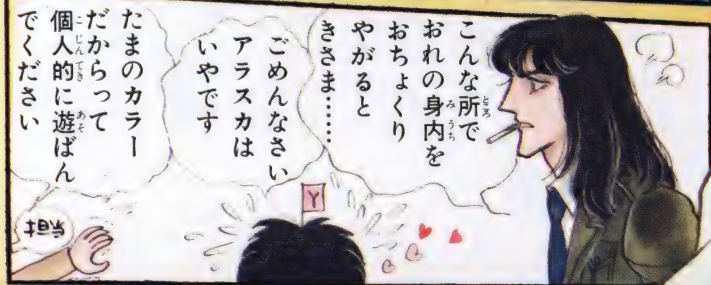 こんな所で
おれの身内を
おちょくり
やがると
きさま……
ごめんなさい
アラスカは
いやです
たまのカラー
だからって
個人的に遊ばん
でください
Y
担当